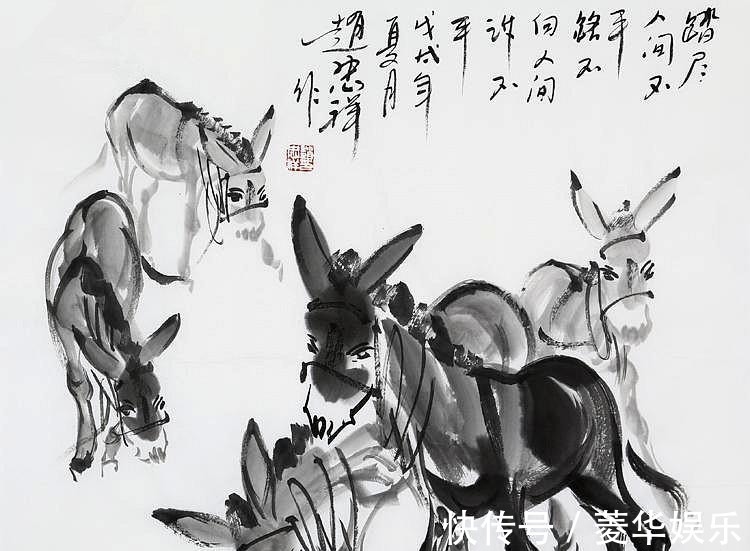 踏尽
人间不
平
路不
向人间
诉不
平
戊戌年
夏月
趙忠祥
作
快传号 / 菱华娱乐